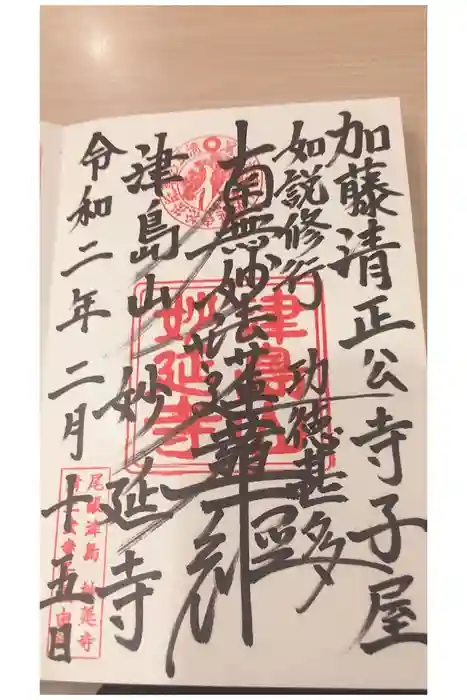 加藤清正公寺子屋
如説修行 功徳甚多
南無妙法蓮華経
津島山 妙延寺
令和二年 二月 十五日
津島山
妙延寺
尾張津島 妙延寺